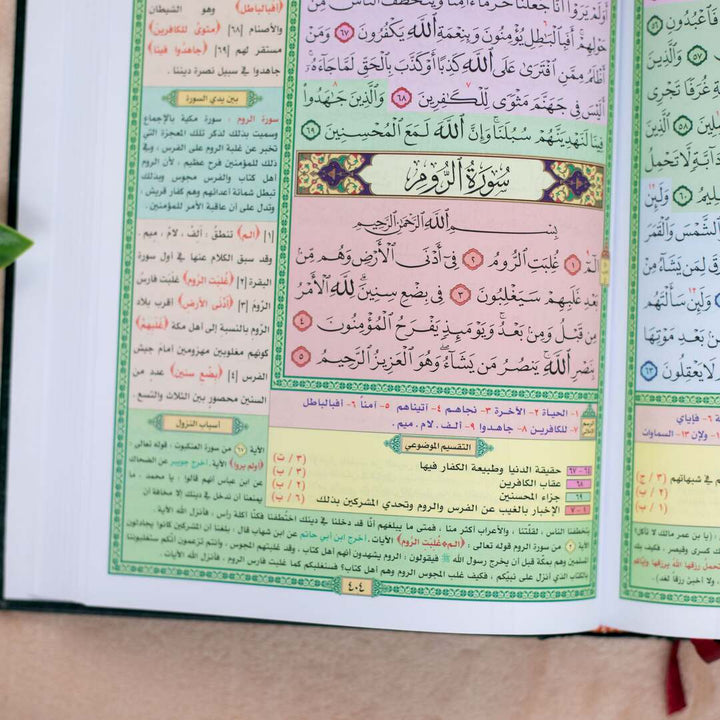 فَٱعْبُدُونِ ٥٦
٥٧ وَٱلَّذِينَ
غُرَفًا تَجْرِى
٥٨ ٱلَّذِينَ
دَآبَّةٍ لَّا تَحْمِلُ
٦٠ وَلَئِن
ٱلشَّمْسَ وَٱلْقَمَرَ
لِمَن يَشَآءُ مِنْ
وَلَئِن سَأَلْتَهُم
بَعْدِ مَوْتِهَا
لَا يَعْقِلُونَ ٦٣
٦- فإياي
١٣- السماوات
أَوَلَمْ يَرَوْا۟ أَنَّا جَعَلْنَا حَرَمًا ءَامِنًا وَيُتَخَطَّفُ ٱلنَّاسُ مِنْ
حَوْلِهِمْ ۚ أَفَبِٱلْبَٰطِلِ يُؤْمِنُونَ وَبِنِعْمَةِ ٱللَّهِ يَكْفُرُونَ ٦٧ وَمَنْ
أَظْلَمُ مِمَّنِ ٱفْتَرَىٰ عَلَى ٱللَّهِ كَذِبًا أَوْ كَذَّبَ بِٱلْحَقِّ لَمَّا جَآءَهُۥٓ ۚ
أَلَيْسَ فِى جَهَنَّمَ مَثْوًى لِّلْكَٰفِرِينَ ٦٨ وَٱلَّذِينَ جَٰهَدُوا۟
فِينَا لَنَهْدِيَنَّهُمْ سُبُلَنَا ۚ وَإِنَّ ٱللَّهَ لَمَعَ ٱلْمُحْسِنِينَ ٦٩
سُورَةُ ٱلرُّومِ
بِسْمِ ٱللَّهِ ٱلرَّحْمَٰنِ ٱلرَّحِيمِ
الٓمٓ ١ غُلِبَتِ ٱلرُّومُ ٢ فِىٓ أَدْنَى ٱلْأَرْضِ وَهُم مِّنۢ
بَعْدِ غَلَبِهِمْ سَيَغْلِبُونَ ٣ فِى بِضْعِ سِنِينَ ۗ لِلَّهِ ٱلْأَمْرُ
مِن قَبْلُ وَمِنۢ بَعْدُ ۚ وَيَوْمَئِذٍ يَفْرَحُ ٱلْمُؤْمِنُونَ ٤
بِنَصْرِ ٱللَّهِ ۚ يَنصُرُ مَن يَشَآءُ ۖ وَهُوَ ٱلْعَزِيزُ ٱلرَّحِيمُ ٥
١- الحياة ٢- الآخرة ٣- نجاهم ٤- آتيناهم ٥- آمناً ٦- أفبالباطل
٧- للكافرين ٨- جاهدوا ٩- ألف. لام. ميم.
التقسيم الموضوعي
٦٤-٦٧ حقيقة الدنيا وطبيعة الكفار فيها (٣ / ت)
٦٨ عقاب الكافرين (٢ / ب)
٦٩ جزاء المحسنين (٢ / ب)
١-٧ الإخبار بالغيب عن الفرس والروم وتحدي المشركين بذلك (٦ / ب)
﴿أفبالباطل﴾ وهو الشيطان
والأصنام [٦٨] ﴿مثوىً للكافرين﴾
مستقر لهم [٦٩] ﴿جاهدوا فينا﴾
جاهدوا في سبيل نصرة ديننا.
بين يدي السورة
سورة الروم: سورة مكية بالإجماع
وسميت بذلك لذكر تلك المعجزة التي
تخبر عن غلبة الروم على الفرس، وفي
ذلك للمؤمنين فرح عظيم، لأن الروم
أهل كتاب والفرس مجوس وبذلك
تبطل شماتة أعدائهم وهم كفار قريش،
وتدل على أن عاقبة الأمر للمؤمنين.
[١] ﴿الم﴾ تنطق: ألف. لام. ميم.
وقد سبق الكلام عنها في أول سورة
البقرة [٢] ﴿غُلِبَت الروم﴾ غلبت فارسُ
الرومَ [٣] ﴿أدنى الأرض﴾ أقرب بلاد
الروم بالنسبة إلى أهل مكة ﴿غلبهم﴾
كونهم مغلوبين مهزومين أمام جيش
الفرس [٤] ﴿بضع سنين﴾ عدد من
السنين محصور بين الثلاث والتسع.
أسباب النزول
الآية ٦٧ من سورة العنكبوت: قوله تعالى:
﴿أولم يروا﴾ الآية. أخرج جويبر عن الضحاك
عن ابن عباس أنهم قالوا: يا محمد، ما
يمنعنا أن ندخل في دينك إلا مخافة أن
يتخطفنا الناس، لقلّتنا، والأعراب أكثر منا، فمتى ما يبلغهم أنّا قد دخلنا في دينك اختُطفنا فكنّا أكلة رأس، فأنزل الله الآية.
الآية ٢ من سورة الروم قوله تعالى: ﴿الم۞غلبت الروم﴾ الآيات. أخرج ابن أبي حاتم عن ابن شهاب قال: بلغنا أن المشركين كانوا يجادلون
المسلمين وهم بمكّة قبل أن يخرج رسول الله ﷺ فيقولون: الروم يشهدون أنهم أهل كتاب، وقد غلبتهم المجوس، وأنتم تزعمون أنكم ستغلبوننا
بالكتاب الذي أنزل على نبيّكم، فكيف غلب المجوس الروم وهم أهل كتاب؟ فسنغلبكم كما غلبت فارس الروم، فأنزل الله الآيات.
٤٠٤